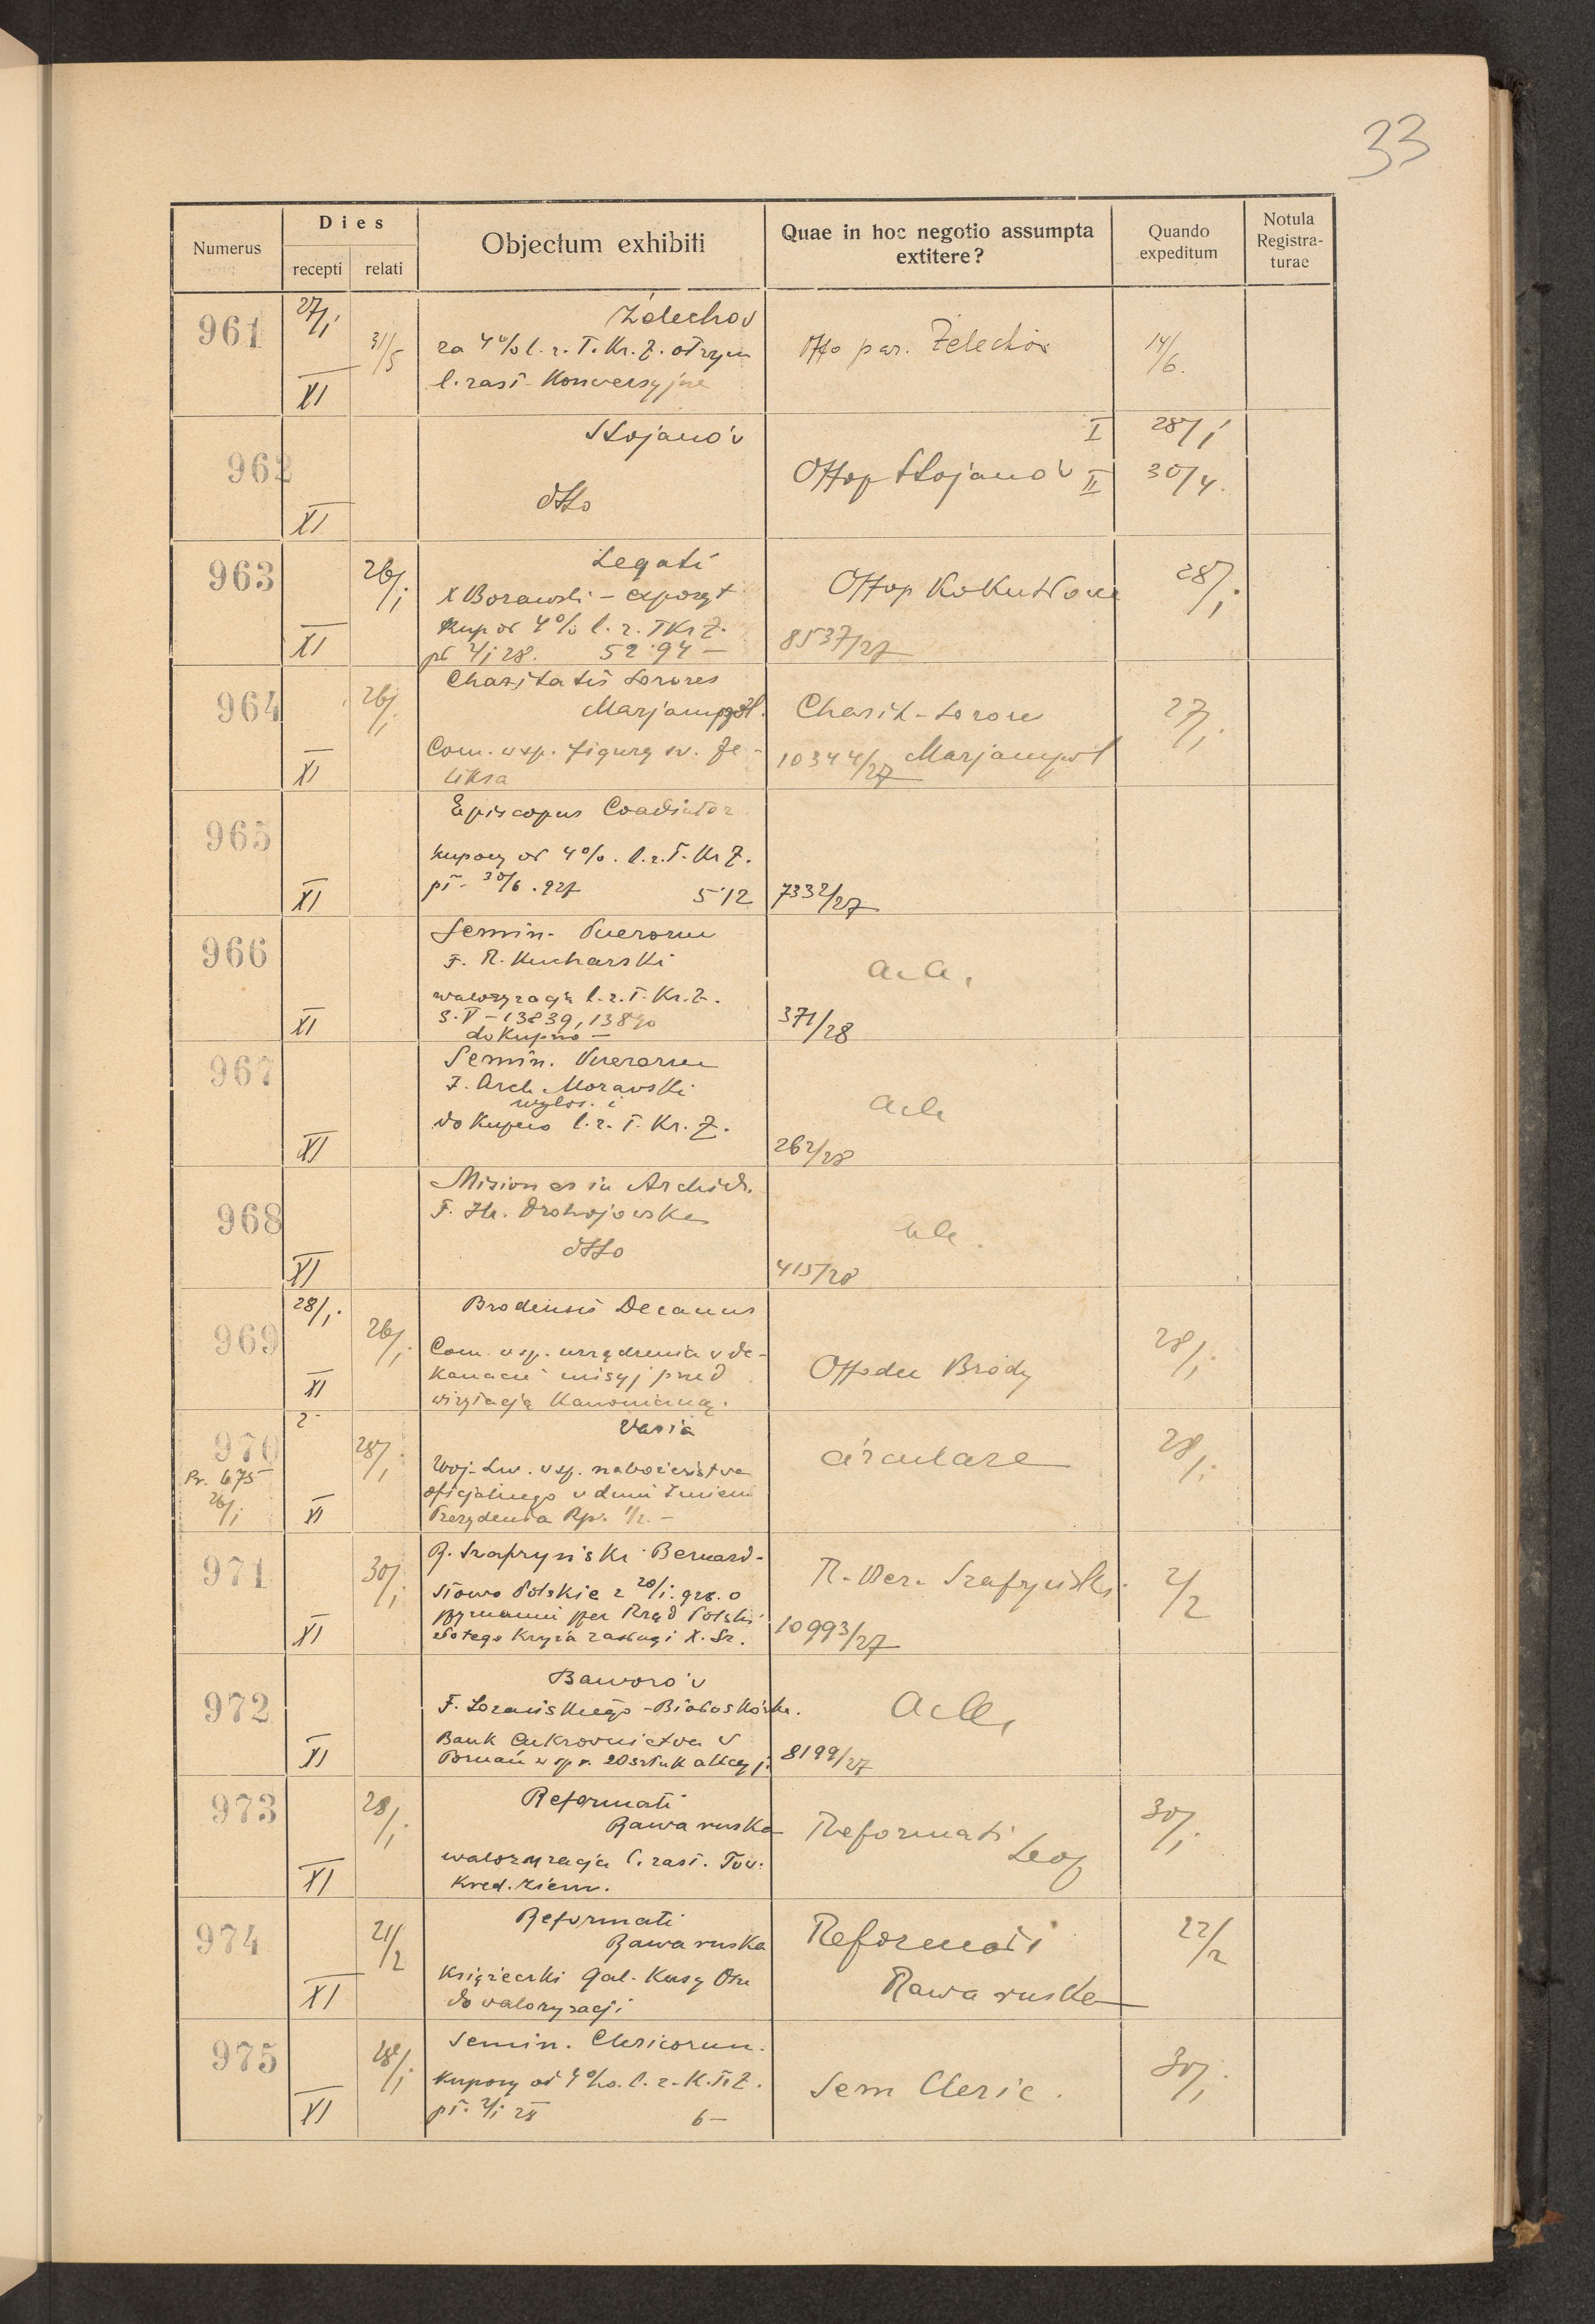 33
Numerus
Dies
recepti
relati
Objectum exhibiti
Quae in hoc negotio assumpta
extitere?
Quando
expeditum
Notula
Registra-
turae
961
27/I
XI
31/5
Żelechów
za 4% l. z. T. Kr. Z. otrzym
l. zast. Konwersyjne
Offo par. Żelechów
14/6.
962
XI
Stojanów
dtto
Offop Stojanów
I
II
28/I
30/4.
963
XI
26/I
Legati
X Borawski –
kup od 4% l. z. TKrZ.
pł 2/I 28. 52.94 –
Offop
8537/27
28/I
964
XI
26/I
Charitatis Sorores
Marjampol.
Com. w sp. figury św. Fe-
liksa
Charit. Sorores
10344/27 Marjampol
27/I
965
XI
Episcopus Coadiutor
kupony od 4%. l. z. T. Kr Z.
pł. 30/6. 927 5.12
7332/27
966
XI
Semin. Puerorum
F. R. Kucharski
waloryzacja l. z. T. Kr. Z.
S. V – 13839, 13840
do Kupno –
acta,
371/28
967
XI
Semin. Puerorum
F. Arch. Morawski
wylos. i
do Kupno l. z. T. Kr. Z.
acta
262/28
968
XI
Misiones in Archid.
F. Hr. Drohojowska
dtto
acta.
415/28
969
28/I.
XI
26/I
Brodensis Decanus
Com. w sp. urządzenia w de-
kanacie misyj przed
wizytacją Kanoniczną.
Offodec Brody
28/I
970
Pr. 675
26/I
XI
28/I
Varia
Woj. Lw. w sp. nabożeństwa
oficjalnego w dniu Imienin
Prezydenta Rp. 1/2. –
circulare
28/I
971
XI
30/I
Bernard-
Słowo Polskie z 20/I. 928. o
przyznaniu przez Rząd Polski
złotego Krzyża zasługi X. Sz.
10993/27
2/2
972
XI
Baworów
Bank Cukrownictwa w
Poznań w sp. 20 sztuk akcyj.
Acta,
8199/27
973
XI
28/I
Reformati
Rawa ruska
waloryzacja l. zast. Tow.
Kred. Ziem.
Reformati
Leop
30/I
974
XI
21/2
Reformati
Rawa ruska
Książeczki Gal. Kasy Osz
do waloryzacji
Reformati
Rawa ruska
22/2
975
XI
28/I
Semin. Clericorum.
kupony od 4%. l. z. K. T. Z.
pł. 2/I 28 6 –
Sem Cleric.
30/I